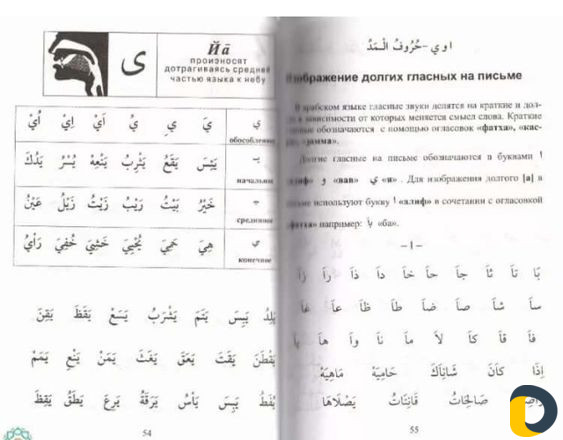 ى
Йā
произносят
дотрагиваясь средней
частью языка к небу
ي يَ يِ يُ اَيْ اِيْ اُيْ
обособленно
يـ يَئِسَ يَقَعُ يَثْرِبُ يَنْعِهْ يُسْرٌ يَدُكَ
начальные
ـيـ خَيْرٌ بَيْتٌ رَيْبٌ زَيْتٌ زَيْلٌ عَيْنٌ
средние
ي هِيَ حَمِيَ يُحْيِيَ خَشِيَ خُفِيَ رَأْيٌ
конечные
يَلِدُ يَبِسَ يَنَمْ يَشْرَبُ يَسَعْ يَقَظَ يَقِنَ
يَقِتَ يَعَقَ يَغَثَ يَمَنَ يَنْعِ يَمَمْ
يَبِسَ يَأْسُ يَرَقَةُ يَرِعَ يَطَقُ يَقِظَ
54
اوي-حُرُوفُ الْمَدُّ
Изображение долгих гласных на письме
В арабском языке гласные звуки делятся на краткие и дол-
в зависимости от которых меняется смысл слова. Краткие
обозначаются с помощью огласовок «фатха», «кас-
«дамма».
Долгие гласные на письме обозначаются в буквами ا
و «вав» ي «и» . Для изображения долгого [а] в
используют букву ا «алиф» в сочетании с огласовкой
«фатха» например: بَا «ба».
–I–
بَا تَا ثَا جَا حَا خَا دَا ذَا رَا زَا
سَا شَا صَا ضَا طَا ظَا عَا غَا
فَا قَا كَا لَا مَا نَا وَا هَا يَا
إِذَا كَانَ شَانِئَكَ حَامِيَةٌ مَاهِيَهْ
صَالِحَاتُ قَانِتَاتٌ يَصْلَاهَا
55